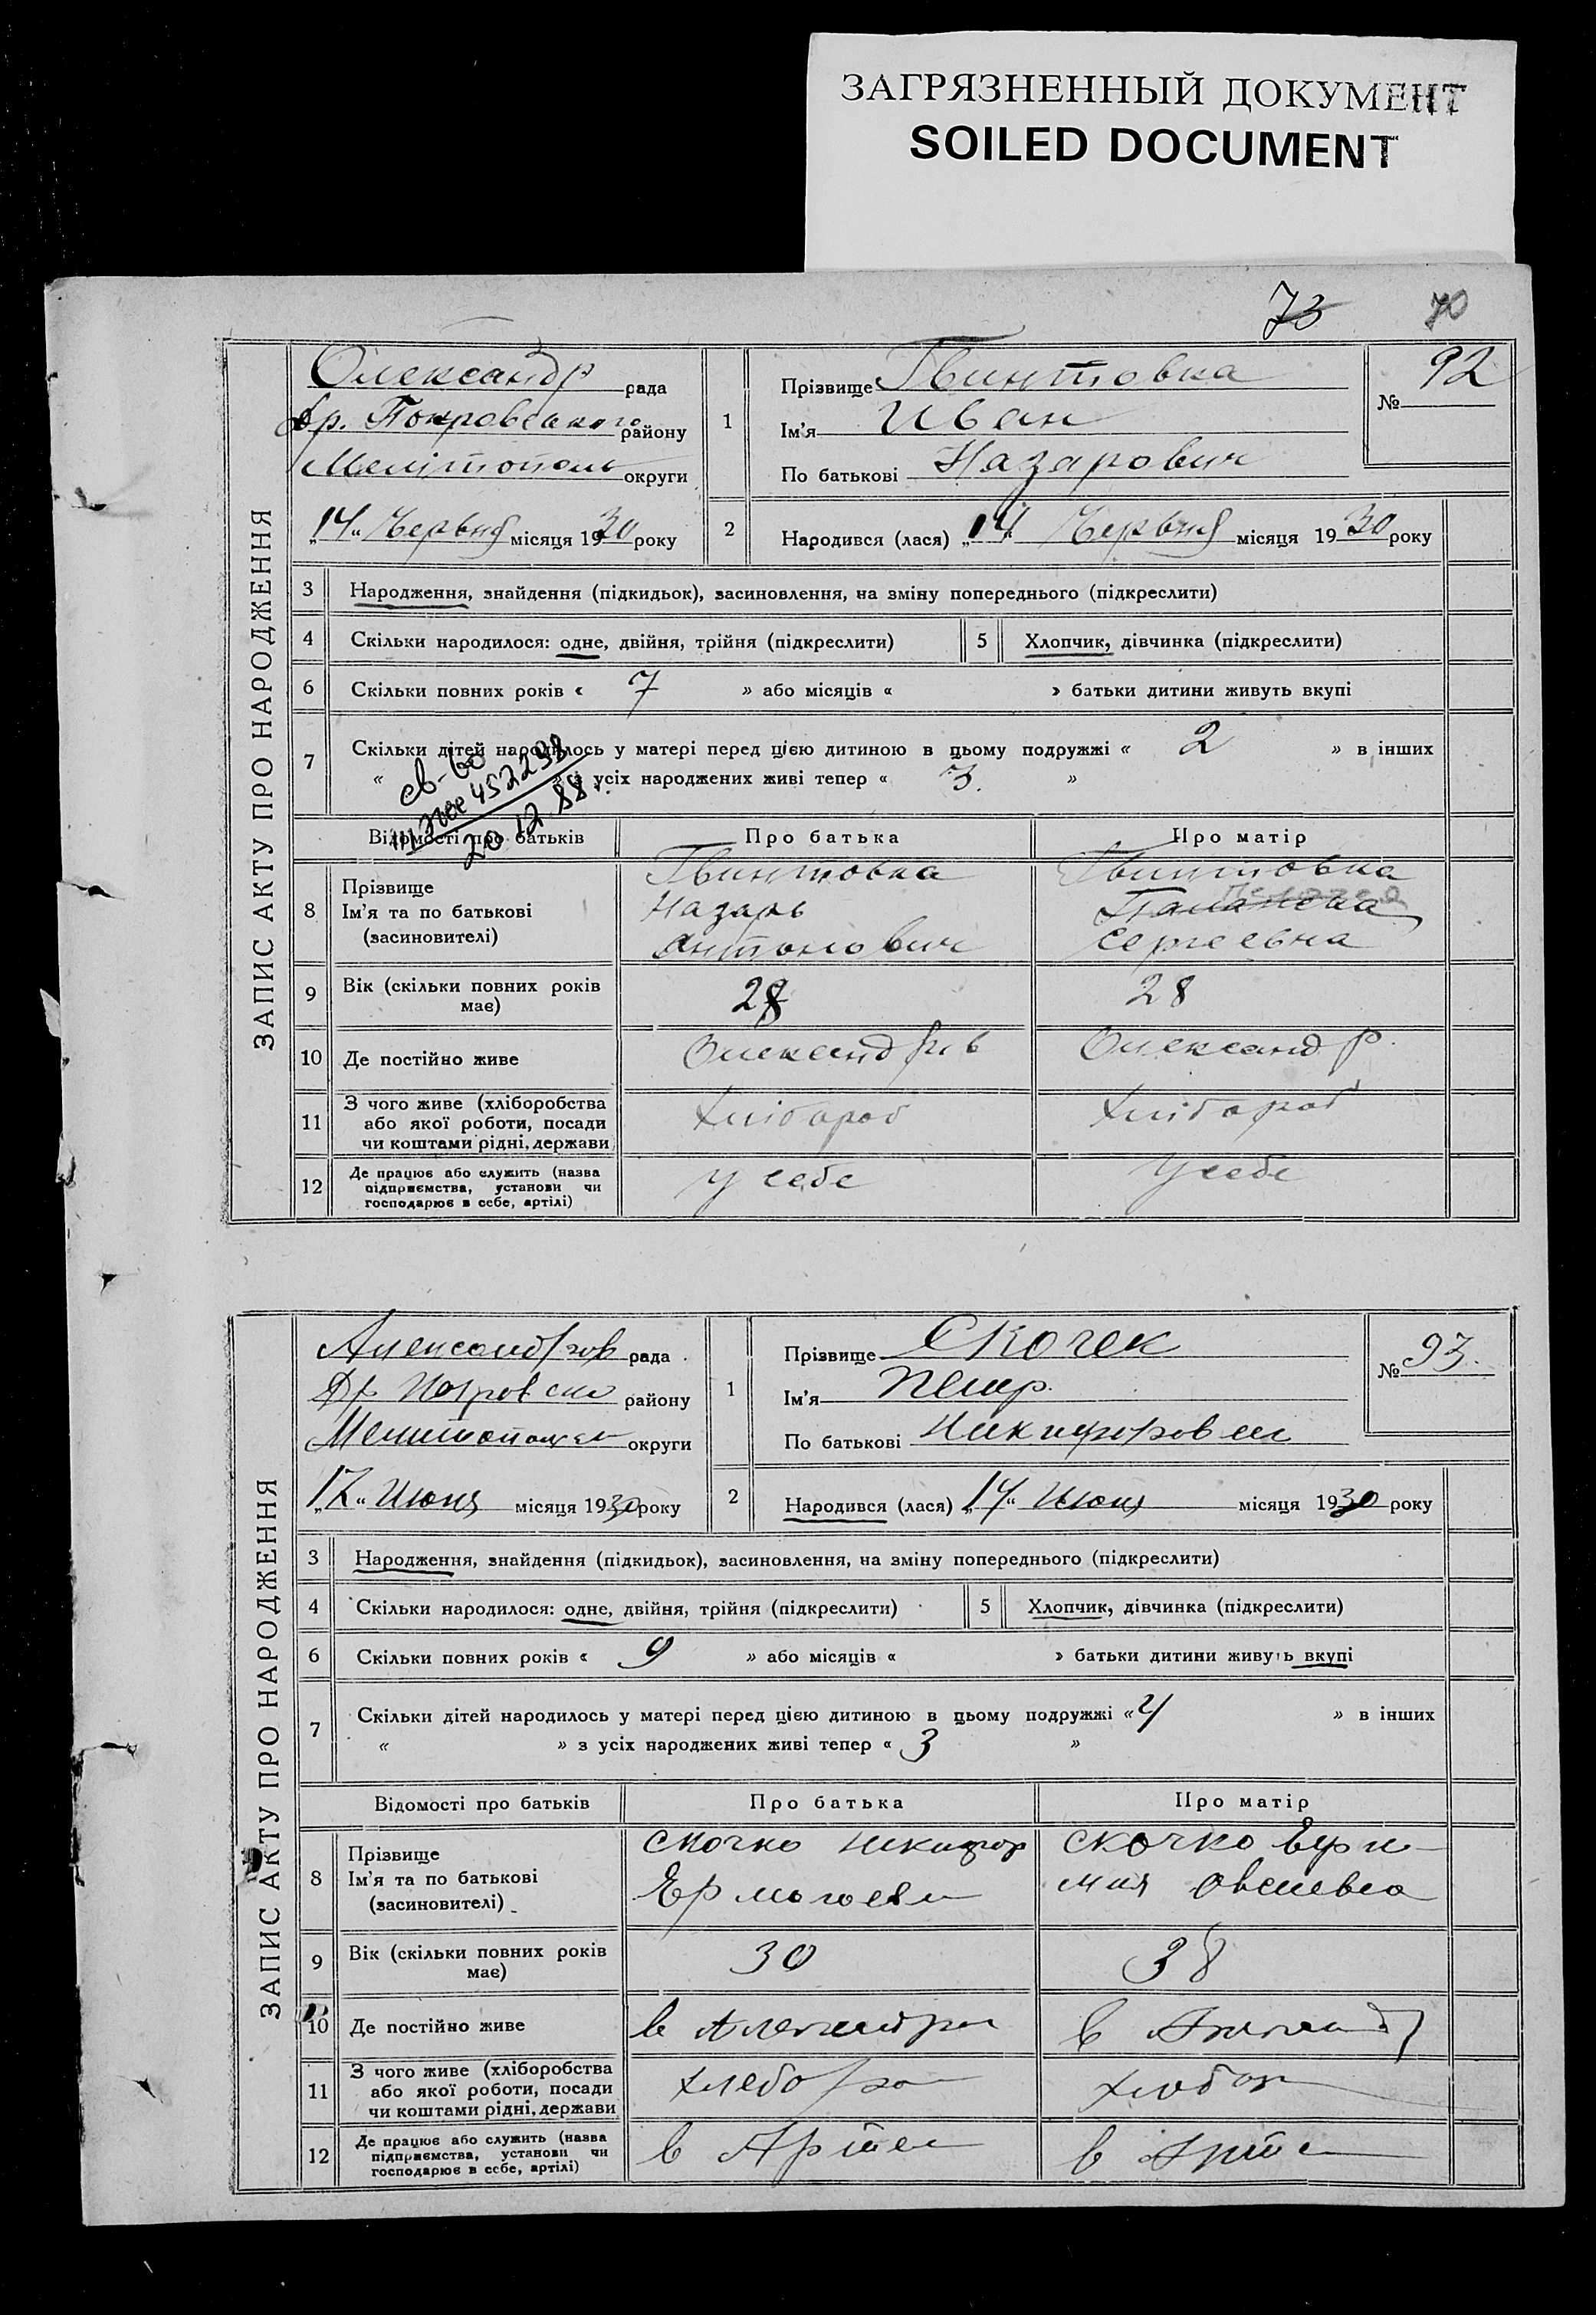 ЗАГРЯЗНЕННЫЙ ДОКУМЕНТ
SOILED DOCUMENT
73 70
ЗАПИС АКТУ ПРО НАРОДЖЕННЯ
Олександр рада
др. Покровського району
Мелітополь округи
„14“ Червня місяця 1930 року
1 Прізвище Гвинтовка
Ім'я Иван
По батькові Назарович
№ 92
2 Народився (лася) „14“ Червня місяця 1930 року
3 Народження, знайдення (підкидьок), засиновлення, на зміну попереднього (підкреслити)
4 Скільки народилося: одне, двійня, трійня (підкреслити) 5 Хлопчик, дівчинка (підкреслити)
6 Скільки повних років « 7 » або місяців « » батьки дитини живуть вкупі
7 Скільки дітей народилось у матері перед цією дитиною в цьому подружжі « 2 » в інших
« » з усіх народжених живі тепер « 3. »
св-во
452298
20 12 88 г.
Відомості про батьків Про батька Про матір
8 Прізвище
Ім'я та по батькові
(засиновителі)
Гвинтовка
Назарь
Антонович
Гвинтовка
Сергеевна
9 Вік (скільки повних років має) 28 28
10 Де постійно живе Олександрів Олександр.
11 З чого живе (хліборобства
або якої роботи, посади
чи коштами рідні, держави
Хлібороб Хлібороб
12 Де працює або служить (назва
підприємства, установи чи
господарює в себе, артілі)
у себе у себе
ЗАПИС АКТУ ПРО НАРОДЖЕННЯ
Александров рада
району
округи
„17“ Июня місяця 1930 року
1 Прізвище Скочек
Ім'я Петр.
По батькові Никифорович
№ 93.
2 Народився (лася) „14“ Июня місяця 1930 року
3 Народження, знайдення (підкидьок), засиновлення, на зміну попереднього (підкреслити)
4 Скільки народилося: одне, двійня, трійня (підкреслити) 5 Хлопчик, дівчинка (підкреслити)
6 Скільки повних років « 9 » або місяців « » батьки дитини живуть вкупі
7 Скільки дітей народилось у матері перед цією дитиною в цьому подружжі « 4 » в інших
« » з усіх народжених живі тепер « 3 »
Відомості про батьків Про батька Про матір
8 Прізвище
Ім'я та по батькові
(засиновителі)
Скочко Никифор
Скочко Ефи-
мия
9 Вік (скільки повних років має) 30 38
10 Де постійно живе в Александр в
11 З чого живе (хліборобства
або якої роботи, посади
чи коштами рідні, держави
хлебороб
12 Де працює або служить (назва
підприємства, установи чи
господарює в себе, артілі)
в Артел в Арте